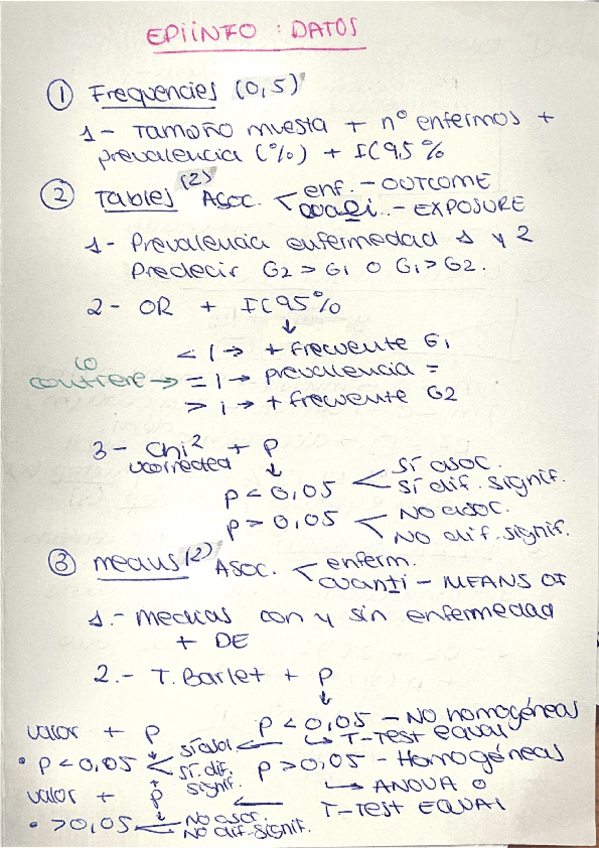 EPIINFO : DATOS
① Frequencies (0,5)
1- Tamaño muesta + nº enfermos +
prevalencia (%) + IC95%
② Tables (2) Asoc. enf. - OUTCOME
cuali. - EXPOSURE
1- Prevalencia enfermedad 1 y 2
Predecir G2 > G1 o G1 > G2.
2- OR + IC95%
↓
< 1 → + frecuente G1
lo contiene → = 1 → prevalencia =
> 1 → + frecuente G2
3- Chi² + P
ucorrected ↓
p < 0,05 Sí asoc.
Sí dif. signif.
p > 0,05 No asoc.
No dif. signif.
③ means (2) Asoc. enferm.
cuanti - MEANS OF
1.- medias con y sin enfermedad
+ DE
2.- T. Barlet + P
↓
p < 0,05 - No homogéneas
↳ T-Test equal
p > 0,05 - Homogéneas
↳ ANOVA o
T-Test EQUAL
valor + P
• p < 0,05 sí asoc
sí. dif. signif.
valor + P
• > 0,05 No asoc.
No dif. signif.